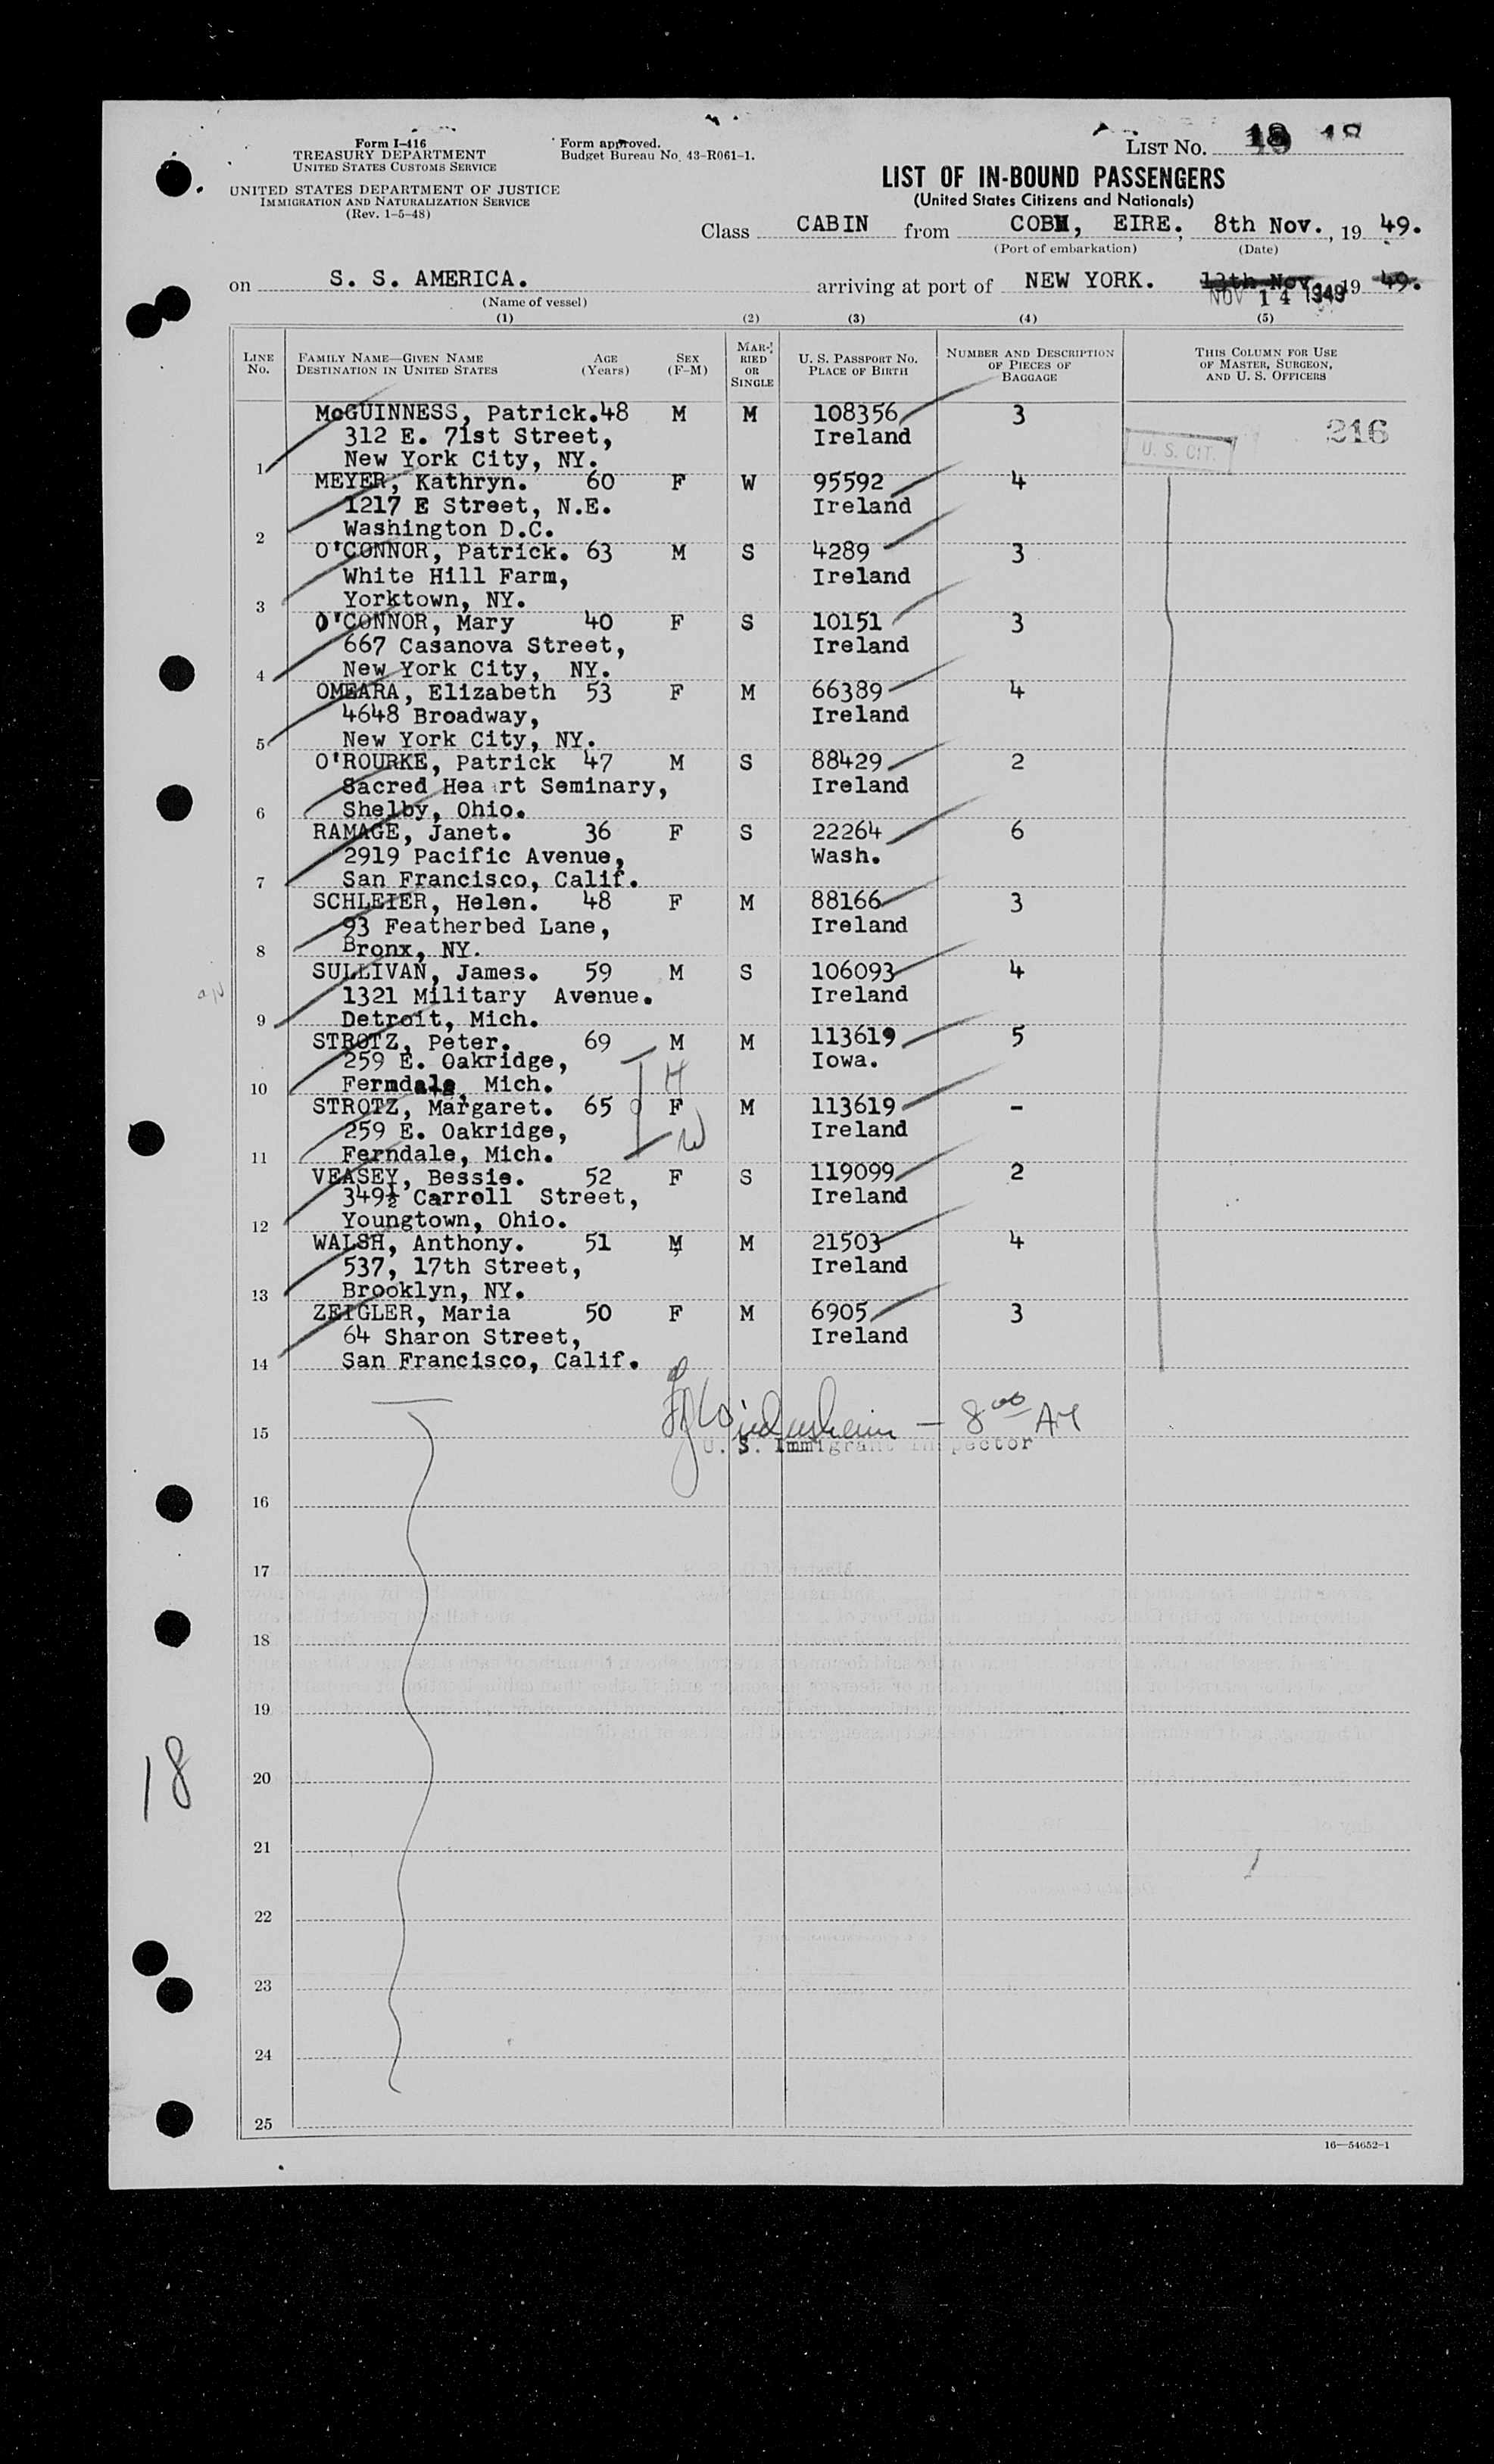 Form I-416
TREASURY DEPARTMENT
UNITED STATES CUSTOMS SERVICE
UNITED STATES DEPARTMENT OF JUSTICE
IMMIGRATION AND NATURALIZATION SERVICE
(Rev. 1-5-48)
Form approved.
Budget Bureau No. 43-R061-1.
LIST NO. 18 18
LIST OF IN-BOUND PASSENGERS
(United States Citizens and Nationals)
Class CABIN from COBH, EIRE, 8th Nov., 19 49.
(Port of embarkation) (Date)
on S. S. AMERICA. arriving at port of NEW YORK. 13th Nov. 19 49.
(Name of vessel) NOV 14 1949
(1) (2) (3) (4) (5)
LINE NO. FAMILY NAME—GIVEN NAME DESTINATION IN UNITED STATES AGE (Years) SEX (F-M) MARRIED OR SINGLE U. S. PASSPORT NO. PLACE OF BIRTH NUMBER AND DESCRIPTION OF PIECES OF BAGGAGE THIS COLUMN FOR USE OF MASTER, SURGEON, AND U. S. OFFICERS
McGUINNESS, Patrick. 48 M M 108356 3
312 E. 71st Street, Ireland U. S. CIT. 216
1 New York City, NY.
MEYER, Kathryn. 60 F W 95592 4
1217 E Street, N.E. Ireland
2 Washington D.C.
O'CONNOR, Patrick. 63 M S 4289 3
White Hill Farm, Ireland
3 Yorktown, NY.
O'CONNOR, Mary 40 F S 10151 3
667 Casanova Street, Ireland
4 New York City, NY.
OMEARA, Elizabeth 53 F M 66389 4
4648 Broadway, Ireland
5 New York City, NY.
O'ROURKE, Patrick 47 M S 88429 2
Sacred Heart Seminary, Ireland
6 Shelby, Ohio.
RAMAGE, Janet. 36 F S 22264 6
2919 Pacific Avenue, Wash.
7 San Francisco, Calif.
SCHLEIER, Helen. 48 F M 88166 3
93 Featherbed Lane, Ireland
8 Bronx, NY.
SULLIVAN, James. 59 M S 106093 4
1321 Military Avenue. Ireland
9 Detroit, Mich.
STROTZ, Peter. 69 M M 113619 5
259 E. Oakridge, Iowa.
10 Ferndale, Mich. H
STROTZ, Margaret. 65 F M 113619 -
259 E. Oakridge, W Ireland
11 Ferndale, Mich.
VEASEY, Bessie. 52 F S 119099 2
349½ Carroll Street, Ireland
12 Youngtown, Ohio.
WALSH, Anthony. 51 M M 21503 4
537, 17th Street, Ireland
13 Brooklyn, NY.
ZEIGLER, Maria 50 F M 6905 3
64 Sharon Street, Ireland
14 San Francisco, Calif.
— 8 00 AM
15 U. S. Immigrant Inspector
16
17
18
19
18
20
21
22
23
24
25
16—54652-1